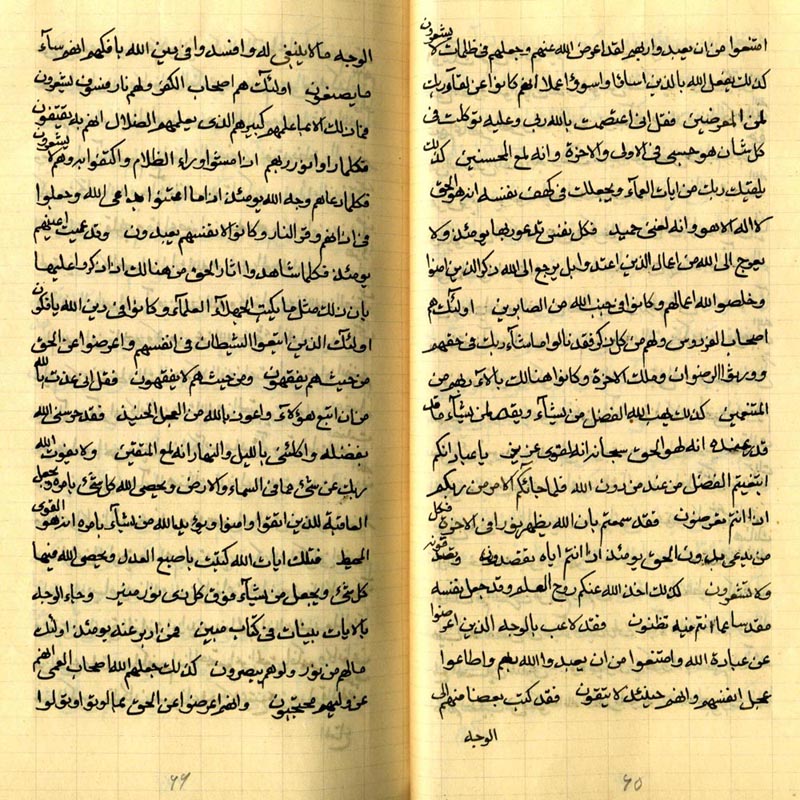 امتنعوا من ان يعبد واربهم لقد اعرض الله عنهم وجعلهم فى ظلمات لا يشعرون
كذلك يفعل الله بالذين اساؤا واسوؤا اعمالا انهم كانوا عن لقاء ربك
لمن المعرضين فقل انى اعتصمت بالله ربى وعليه توكلت فى
كل شان هو حسبى فى الاولى والاخرة وانه لمع المحسنين كذلك
يلقينك ربك من ايات العماء ويجعلك فى كهف نفسه انه هو الحق
لا اله الا هو وانه لغنى حميد فكل نفس تدعو ربها يومئذ ولا
يعرج الى الله من اعمال الذين اعتدوا بل يرجع الى الله ذكر الذين امنوا
وخلصوا لله اعمالهم وكانوا فى جنب الله من الصابرين اولئك هم
اصحاب الفردوس ولهم من كل ذكر فقد نالوا ما شاء ربك فى حقهم
وورثوا الرضوان وملك الاخرة وكانوا هنالك بالاء ربهم من
المتنعمين كذلك يهب الله الفضل من يشاء ويقدر لمن يشاء ما قدر
عنده انه لهو الحق سبحانه انه لقوى عزيز يا عباد انكم
ابتغيتم الفضل من عند من دون الله فلما جائكم الامر من ربكم
اذا انتم تعرضون فقد سمعتم بان الله يظهر نورا فى الاخرة فكل
من يدعى بدون الحق يومئذ اذا انتم اياه تقصدون
ولا تشعرون كذلك اخذ الله عنكم روح العلم وقد جعل نفسه
مقدسا عما انتم فيه تظنون فقد لاعب بالوجه الذين اعرضوا
عن عبادة الله وامتنعوا من ان يعبدوا الله ربهم واطاعوا
عجل انفسهم وانهم حينئذ لا يتقون فقد كتب بعضا منهم الى
الوجه
٦٥
الوجه ما لا ينبغى له وافسدوا فى دين الله بافكهم انهم ساء
ما يصنعون اولئك هم اصحاب الكفر ولهم نار فسوف يشعرون
فما ذلك الا عما علمهم كبيرهم الذى يعلمهم الضلال انهم به يقتفون
فكلما راوا نور ربهم اذا مشوا وراء الظلام واكتفوا به وهم لا يشعرون
فكلما دعاهم وجه الله يومئذ اذا ما اعتنوا بداعى الله وجعلوا
فى اذانهم وقر النار وكانوا لانفسهم يعبدون وقد عميت اعينهم
يومئذ فكلما شاهدوا اثار الحق من هنالك اذا نكروا عليها
بان ذلك مثل ما يكتب الجهلاء العلماء وكانوا فى دين الله يافكون
اولئك الذين اتبعوا الشيطان فى انفسهم واعرضوا عن الحق
من حيث هم يفقهون ومن حيث هم لا يفقهون فقل انى عذت بالله
من ان اتبع هؤلاء واعوذ بالله من العجل الحنيذ فقد حرسنى الله
بفضله واكلئنى بالليل والنهار انه لمع المتقين ولا يفوت الله
ربك عن شئ مما فى السماء والارض ويحصى الله كل شئ بامره ويجعل
العاقبة للذين اتقوا وامنوا ويؤيد الله من يشاء بامره انه هو القوى
المحيط فتلك ايات الله كتبت باصبع العدل ويحصى الله فيها
كل شئ ويجعل من يشاء فوق كل ذى نور منير وجاء الوجه
بالايات بينات فى كتاب مبين فمن ادبر عنه يومئذ اولئك
ما لهم من نور ولو هم يبصرون كذلك جعلهم الله اصحاب العمى انهم
عن وليهم محتجبون وانهم اعرضوا عن الحق بما اوتوا وبقولوا
٦٦